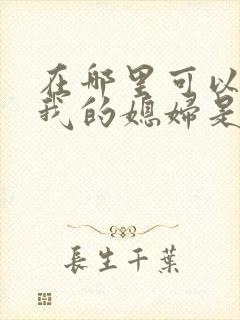 在哪里可以
我的媳妇是
長生千葉